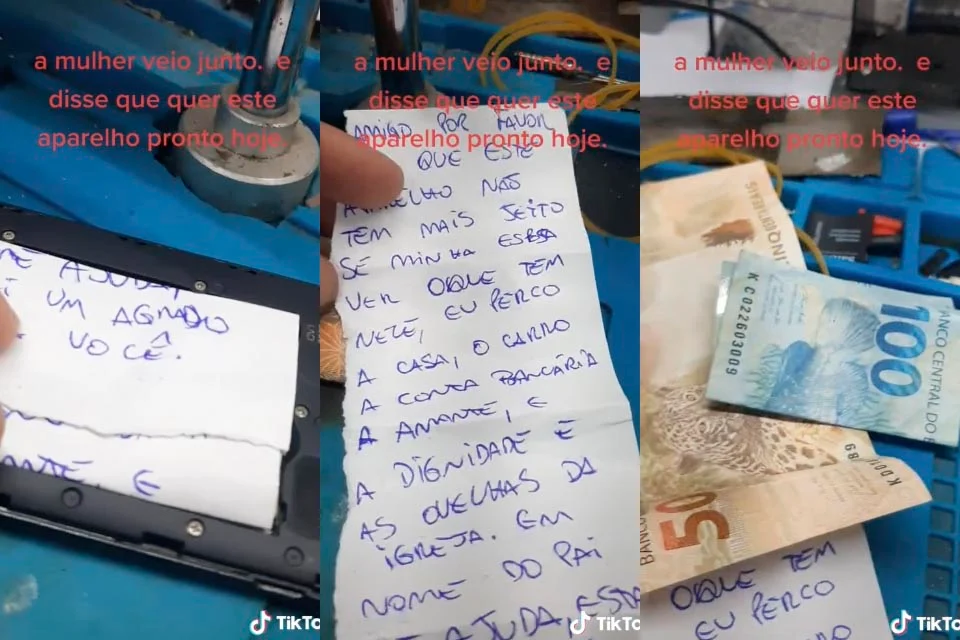 a mulher veio junto. e
disse que quer este
aparelho pronto hoje.
ME AJUDA,
UM AGRADO
VOCÊ.
ANTE, E
TikTo
a mulher veio junto. e
disse que quer este
aparelho pronto hoje.
AMIGO POR FAVOR
QUE ESTE
APARELHO NAS
TEM MAIS JEITO
SE MINHA ESPSA
VER OQUE TEM
NETE, EU PERCO
A CASA, O CARRO
A CONTA BANCÁRIA
A AMANTE, E
A DIGNIDADE E
AS OVELHAS DA
IGREJA. EM
NOME DO PAI
AJUDA, ESTA
TikTo
a mulher veio junto. e
disse que quer este
aparelho pronto hoje.
CINQUENTA REAIS
KC022603009
100
BANCO CENTRAL DO B
50
BANCO
OQUE TEM
EU PERCO
TikTo